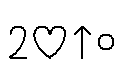 2♡↑○